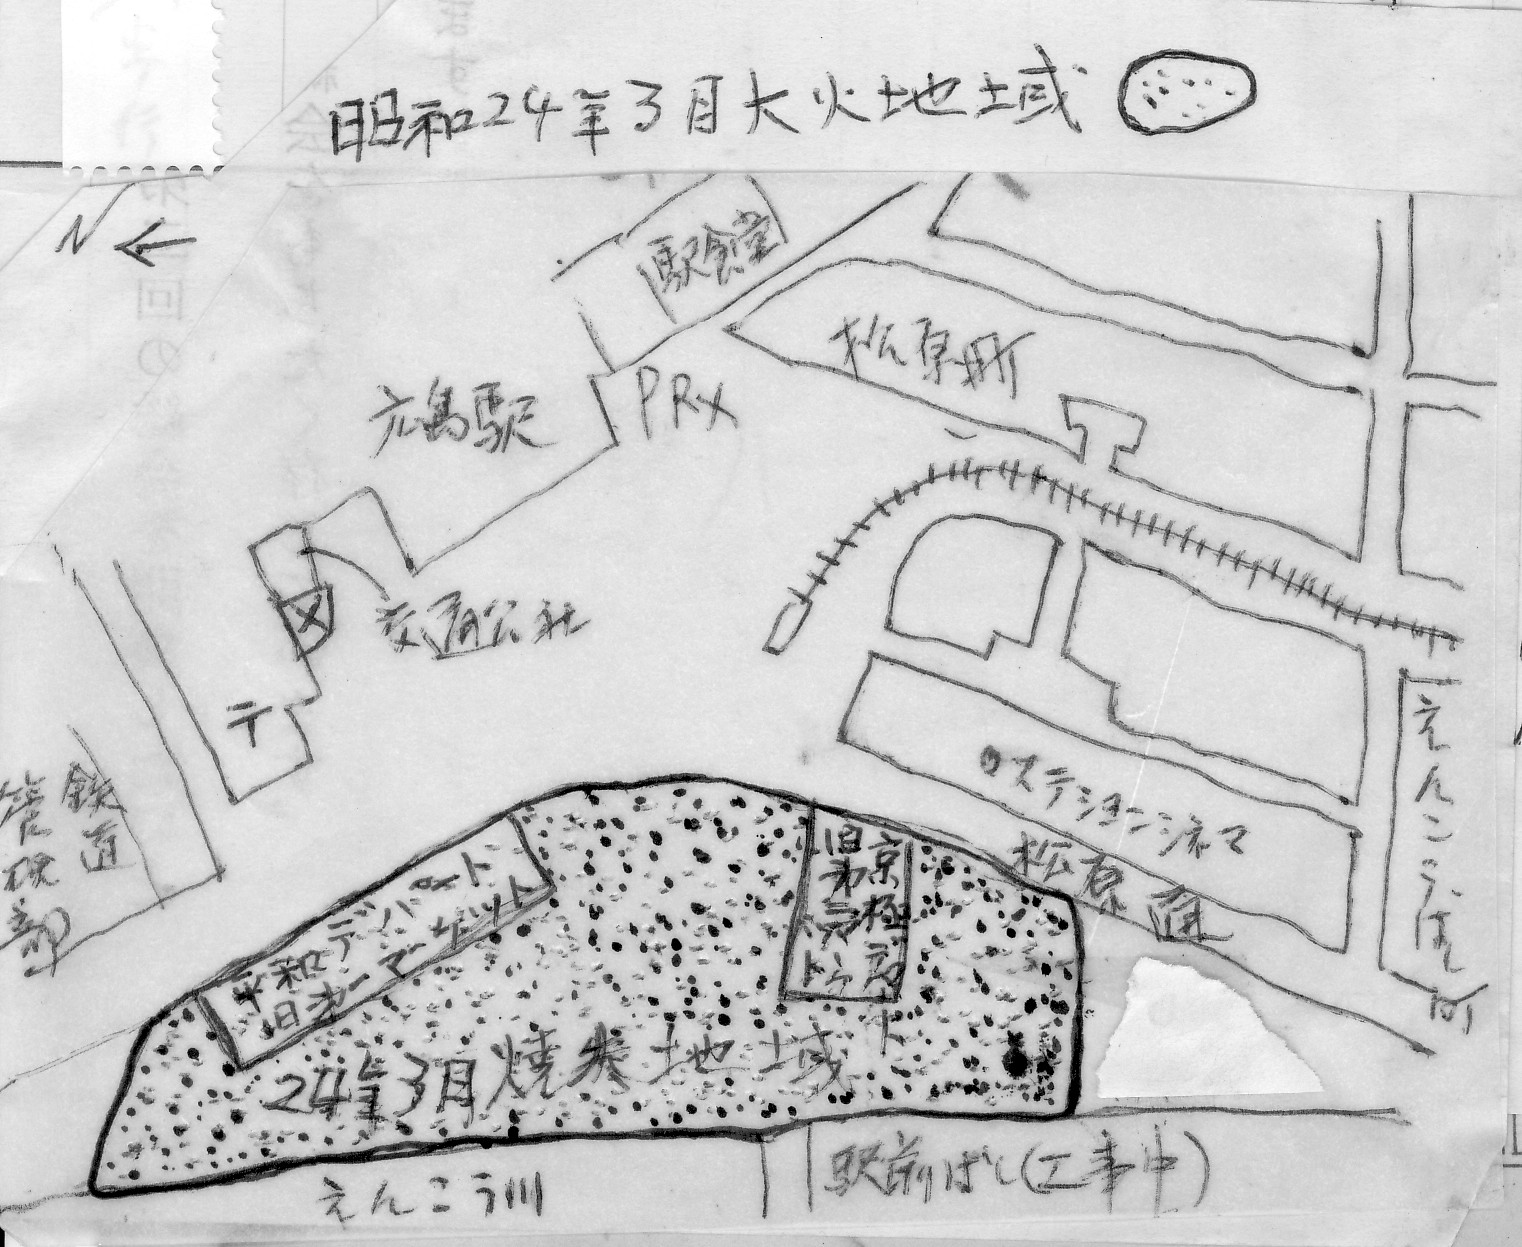 昭和24年3月大火地域
N
駅食堂
松原町
PRX
広島駅
交通公社
〒
鉄道
管理部
えんこうばし町
ロステーションシネマ
松原通
平和デパート
旧オーマーケット
京極
24年3月焼失地域
えんこう川
駅前ばし(工事中)